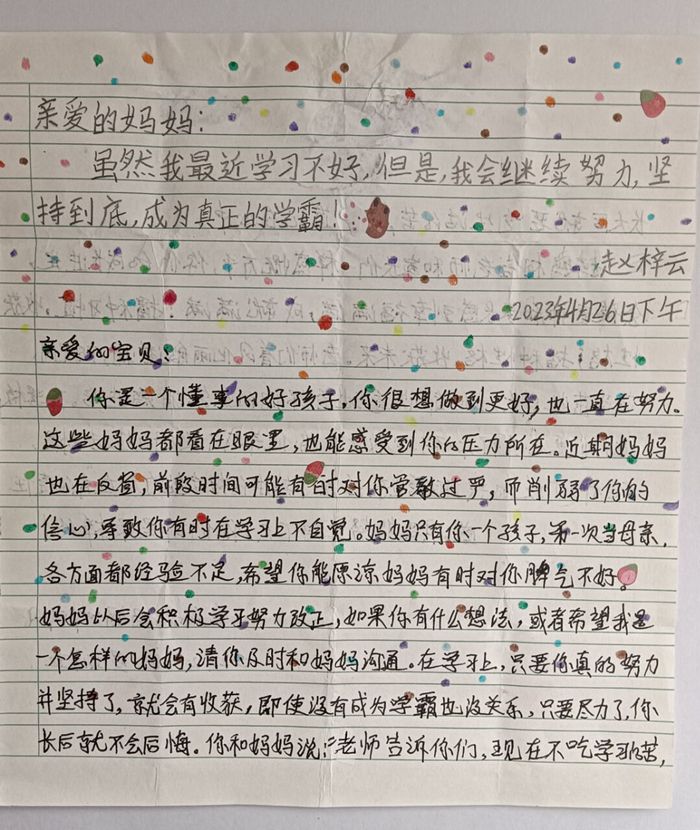 亲爱的妈妈:
虽然我最近学习不好,但是,我会继续努力,坚
持到底,成为真正的学霸!
赵梓云
2023年4月26日下午
亲爱的宝贝!
你是一个懂事的好孩子,你很想做到更好,也一直在努力。
这些妈妈都看在眼里,也能感受到你的压力所在。近期妈妈
也在反省,前段时间可能有时对你管教过严,而削弱了你的
信心,导致你有时在学习上不自觉。妈妈只有你一个孩子,第一次当母亲,
各方面都经验不足,希望你能原谅妈妈有时对你脾气不好。
妈妈以后会积极学习努力改正,如果你有什么想法,或者希望我是
一个怎样的妈妈,请你及时和妈妈沟通。在学习上,只要你真的努力
并坚持了,就会有收获,即使没有成为学霸也没关系,只要尽力了,你
长后就不会后悔。你和妈妈说:"老师告诉你们,现在不吃学习的苦,